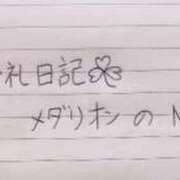 礼日記
メダリオンの N